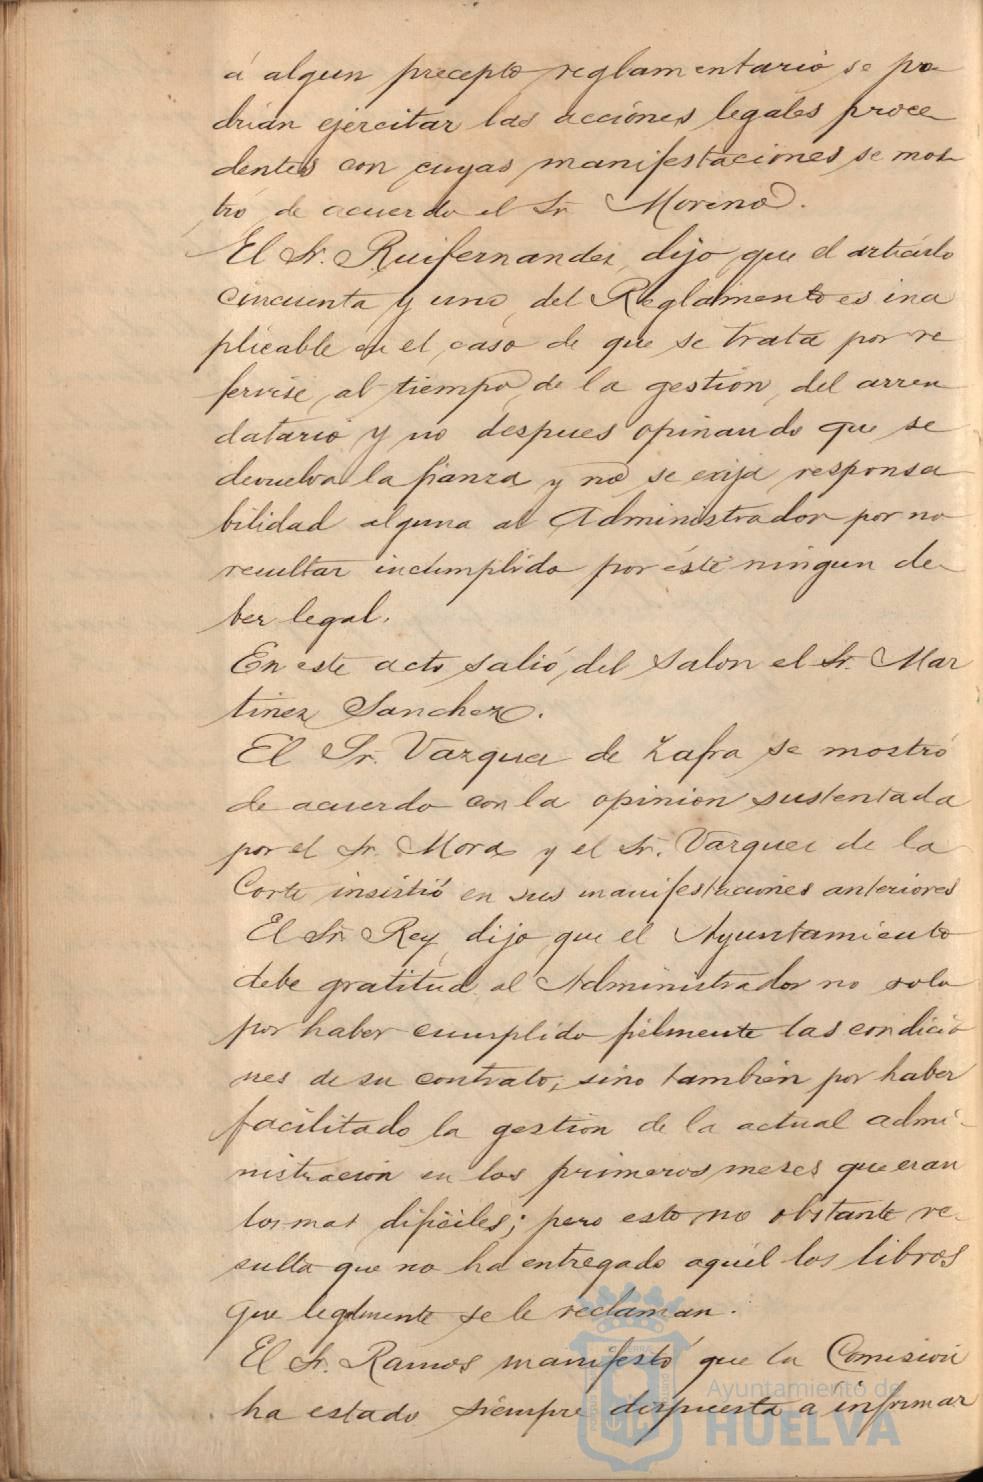 á algun precepto reglamentario se po-
drian ejercitar las acciones legales proce-
dentes con cuyas manifestaciones se mos-
tró de acuerdo el Sr. Moreno.
El Sr. Ruifernandez dijo que el articulo
cincuenta y uno del Reglamento es ina
plicable en el caso de que se trata por re
ferirse al tiempo de la gestion del arren
datario y no despues opinando que se
devuelva la fianza y no se exija responsa
bilidad alguna al Administrador por no
resultar incumplido por éste ningun de-
ber legal.
En este acto salió del salon el Sr. Mar
tinez Sanchez.
El Sr. Vazquez de Zafra se mostró
de acuerdo con la opinion sustentada
por el Sr. Mora y el Sr. Vazquez de la
Corte insistió en sus manifestaciones anteriores
El Sr. Rey dijo que el Ayuntamiento
debe gratitud al Administrador no solo
por haber cumplido fielmente las condicio
nes de su contrato, sino tambien por haber
facilitado la gestion de la actual admi-
nistracion en los primeros meses que eran
los mas dificiles; pero esto no obstante re-
sulta que no ha entregado aquél los libros
que legalmente se le reclaman.
El Sr. Ramos manifestó que la Comision
ha estado siempre dispuesta a informar
Ayuntamiento de
HUELVA